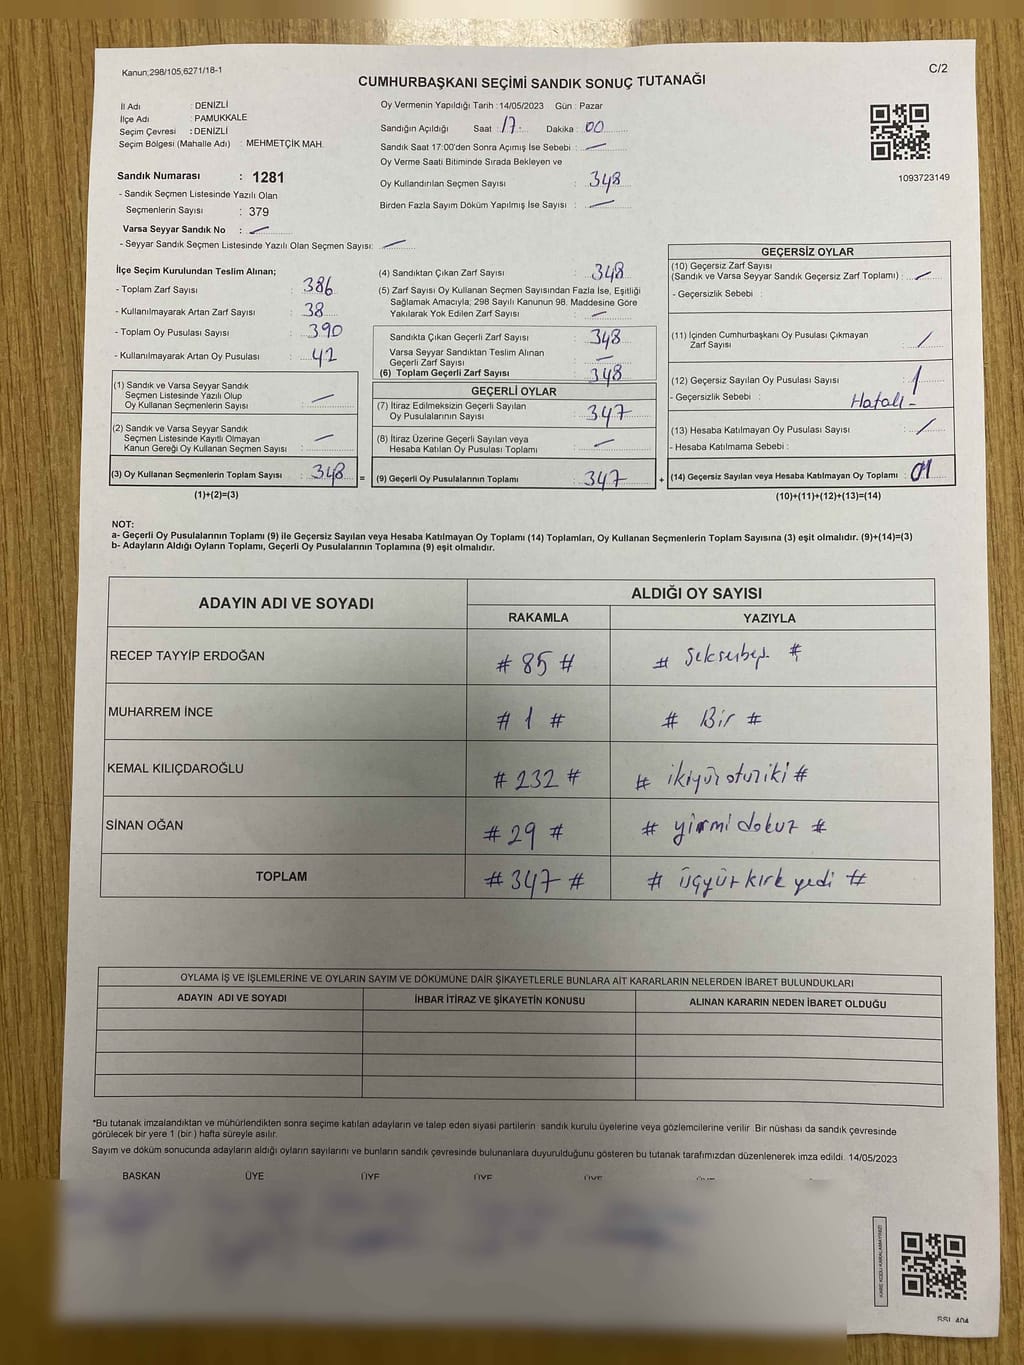 Kanun;298/105,6271/18-1
C/2
CUMHURBAŞKANI SEÇİMİ SANDIK SONUÇ TUTANAĞI
İl Adı : DENİZLİ
İlçe Adı : PAMUKKALE
Seçim Çevresi : DENİZLİ
Seçim Bölgesi (Mahalle Adı) : MEHMETÇİK MAH.
Sandık Numarası : 1281
- Sandık Seçmen Listesinde Yazılı Olan
Seçmenlerin Sayısı : 379
Varsa Seyyar Sandık No : —
- Seyyar Sandık Seçmen Listesinde Yazılı Olan Seçmen Sayısı: —
Oy Vermenin Yapıldığı Tarih : 14/05/2023 Gün : Pazar
Sandığın Açıldığı Saat : 17 Dakika : 00
Sandık Saat 17:00'den Sonra Açımış İse Sebebi : —
Oy Verme Saati Bitiminde Sırada Bekleyen ve
Oy Kullandırılan Seçmen Sayısı : 348
Birden Fazla Sayım Döküm Yapılmış İse Sayısı : —
1093723149
İlçe Seçim Kurulundan Teslim Alınan;
- Toplam Zarf Sayısı : 386
- Kullanılmayarak Artan Zarf Sayısı : 38
- Toplam Oy Pusulası Sayısı : 390
- Kullanılmayarak Artan Oy Pusulası : 42
(1) Sandık ve Varsa Seyyar Sandık
Seçmen Listesinde Yazılı Olup
Oy Kullanan Seçmenlerin Sayısı : —
(2) Sandık ve Varsa Seyyar Sandık
Seçmen Listesinde Kayıtlı Olmayan
Kanun Gereği Oy Kullanan Seçmen Sayısı : —
(3) Oy Kullanan Seçmenlerin Toplam Sayısı : 348 =
(1)+(2)=(3)
(4) Sandıktan Çıkan Zarf Sayısı : 348
(5) Zarf Sayısı Oy Kullanan Seçmen Sayısından Fazla İse, Eşitliği
Sağlamak Amacıyla; 298 Sayılı Kanunun 98. Maddesine Göre
Yakılarak Yok Edilen Zarf Sayısı : —
Sandıkta Çıkan Geçerli Zarf Sayısı : 348
Varsa Seyyar Sandıktan Teslim Alınan
Geçerli Zarf Sayısı : —
(6) Toplam Geçerli Zarf Sayısı : 348
GEÇERLİ OYLAR
(7) İtiraz Edilmeksizin Geçerli Sayılan
Oy Pusulalarının Sayısı : 347
(8) İtiraz Üzerine Geçerli Sayılan veya
Hesaba Katılan Oy Pusulası Toplamı : —
(9) Geçerli Oy Pusulalarının Toplamı : 347 +
GEÇERSİZ OYLAR
(10) Geçersiz Zarf Sayısı
(Sandık ve Varsa Seyyar Sandık Geçersiz Zarf Toplamı) : —
- Geçersizlik Sebebi :
(11) İçinden Cumhurbaşkanı Oy Pusulası Çıkmayan
Zarf Sayısı : /
(12) Geçersiz Sayılan Oy Pusulası Sayısı : 1
- Geçersizlik Sebebi : Hatalı -
(13) Hesaba Katılmayan Oy Pusulası Sayısı : /
- Hesaba Katılmama Sebebi :
(14) Geçersiz Sayılan veya Hesaba Katılmayan Oy Toplamı : 01
(10)+(11)+(12)+(13)=(14)
NOT:
a- Geçerli Oy Pusulalarının Toplamı (9) ile Geçersiz Sayılan veya Hesaba Katılmayan Oy Toplamı (14) Toplamları, Oy Kullanan Seçmenlerin Toplam Sayısına (3) eşit olmalıdır. (9)+(14)=(3)
b- Adayların Aldığı Oyların Toplamı, Geçerli Oy Pusulalarının Toplamına (9) eşit olmalıdır.
ADAYIN ADI VE SOYADI ALDIĞI OY SAYISI
RAKAMLA YAZIYLA
RECEP TAYYİP ERDOĞAN # 85 # # Seksenbeş #
MUHARREM İNCE # 1 # # Bir #
KEMAL KILIÇDAROĞLU # 232 # # ikiyüzotuziki #
SİNAN OĞAN # 29 # # yirmi dokuz #
TOPLAM # 347 # # üçyüz kırk yedi #
OYLAMA İŞ VE İŞLEMLERİNE VE OYLARIN SAYIM VE DÖKÜMÜNE DAİR ŞİKAYETLERLE BUNLARA AİT KARARLARIN NELERDEN İBARET BULUNDUKLARI
ADAYIN ADI VE SOYADI İHBAR İTİRAZ VE ŞİKAYETİN KONUSU ALINAN KARARIN NEDEN İBARET OLDUĞU
*Bu tutanak imzalandıktan ve mühürlendikten sonra seçime katılan adayların ve talep eden siyasi partilerin sandık kurulu üyelerine veya gözlemcilerine verilir. Bir nüshası da sandık çevresinde
görülecek bir yere 1 (bir ) hafta süreyle asılır.
Sayım ve döküm sonucunda adayların aldığı oyların sayılarını ve bunların sandık çevresinde bulunanlara duyurulduğunu gösteren bu tutanak tarafımızdan düzenlenerek imza edildi. 14/05/2023
BAŞKAN ÜYE ÜYE ÜYE ÜYE
KARE KODU KARALAMAYINIZ!